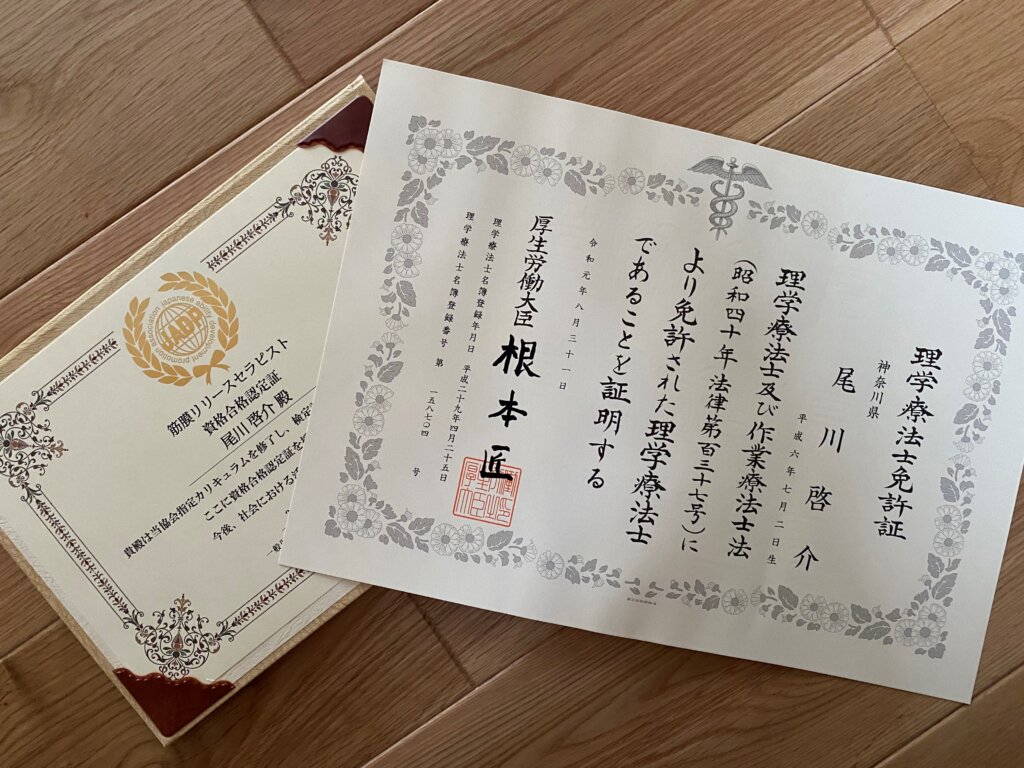 理学療法士免許証
神奈川県
尾川啓介
平成六年七月二日生
理学療法士及び作業療法士法
(昭和四十年法律第百三十七号)に
より免許された理学療法士
であることを証明する
令和元年八月三十一日
厚生労働大臣 根本匠
理学療法士名簿登録年月日 平成二十九年四月二十五日
理学療法士名簿登録番号 第 一五八七〇四 号
japanese ability development promotion association
JADP
筋膜リリースセラピスト
資格合格認定証
尾川 啓介 殿
貴殿は当協会指定カリキュラムを修了し、検定
ここに資格合格認定証を
今後、社会における